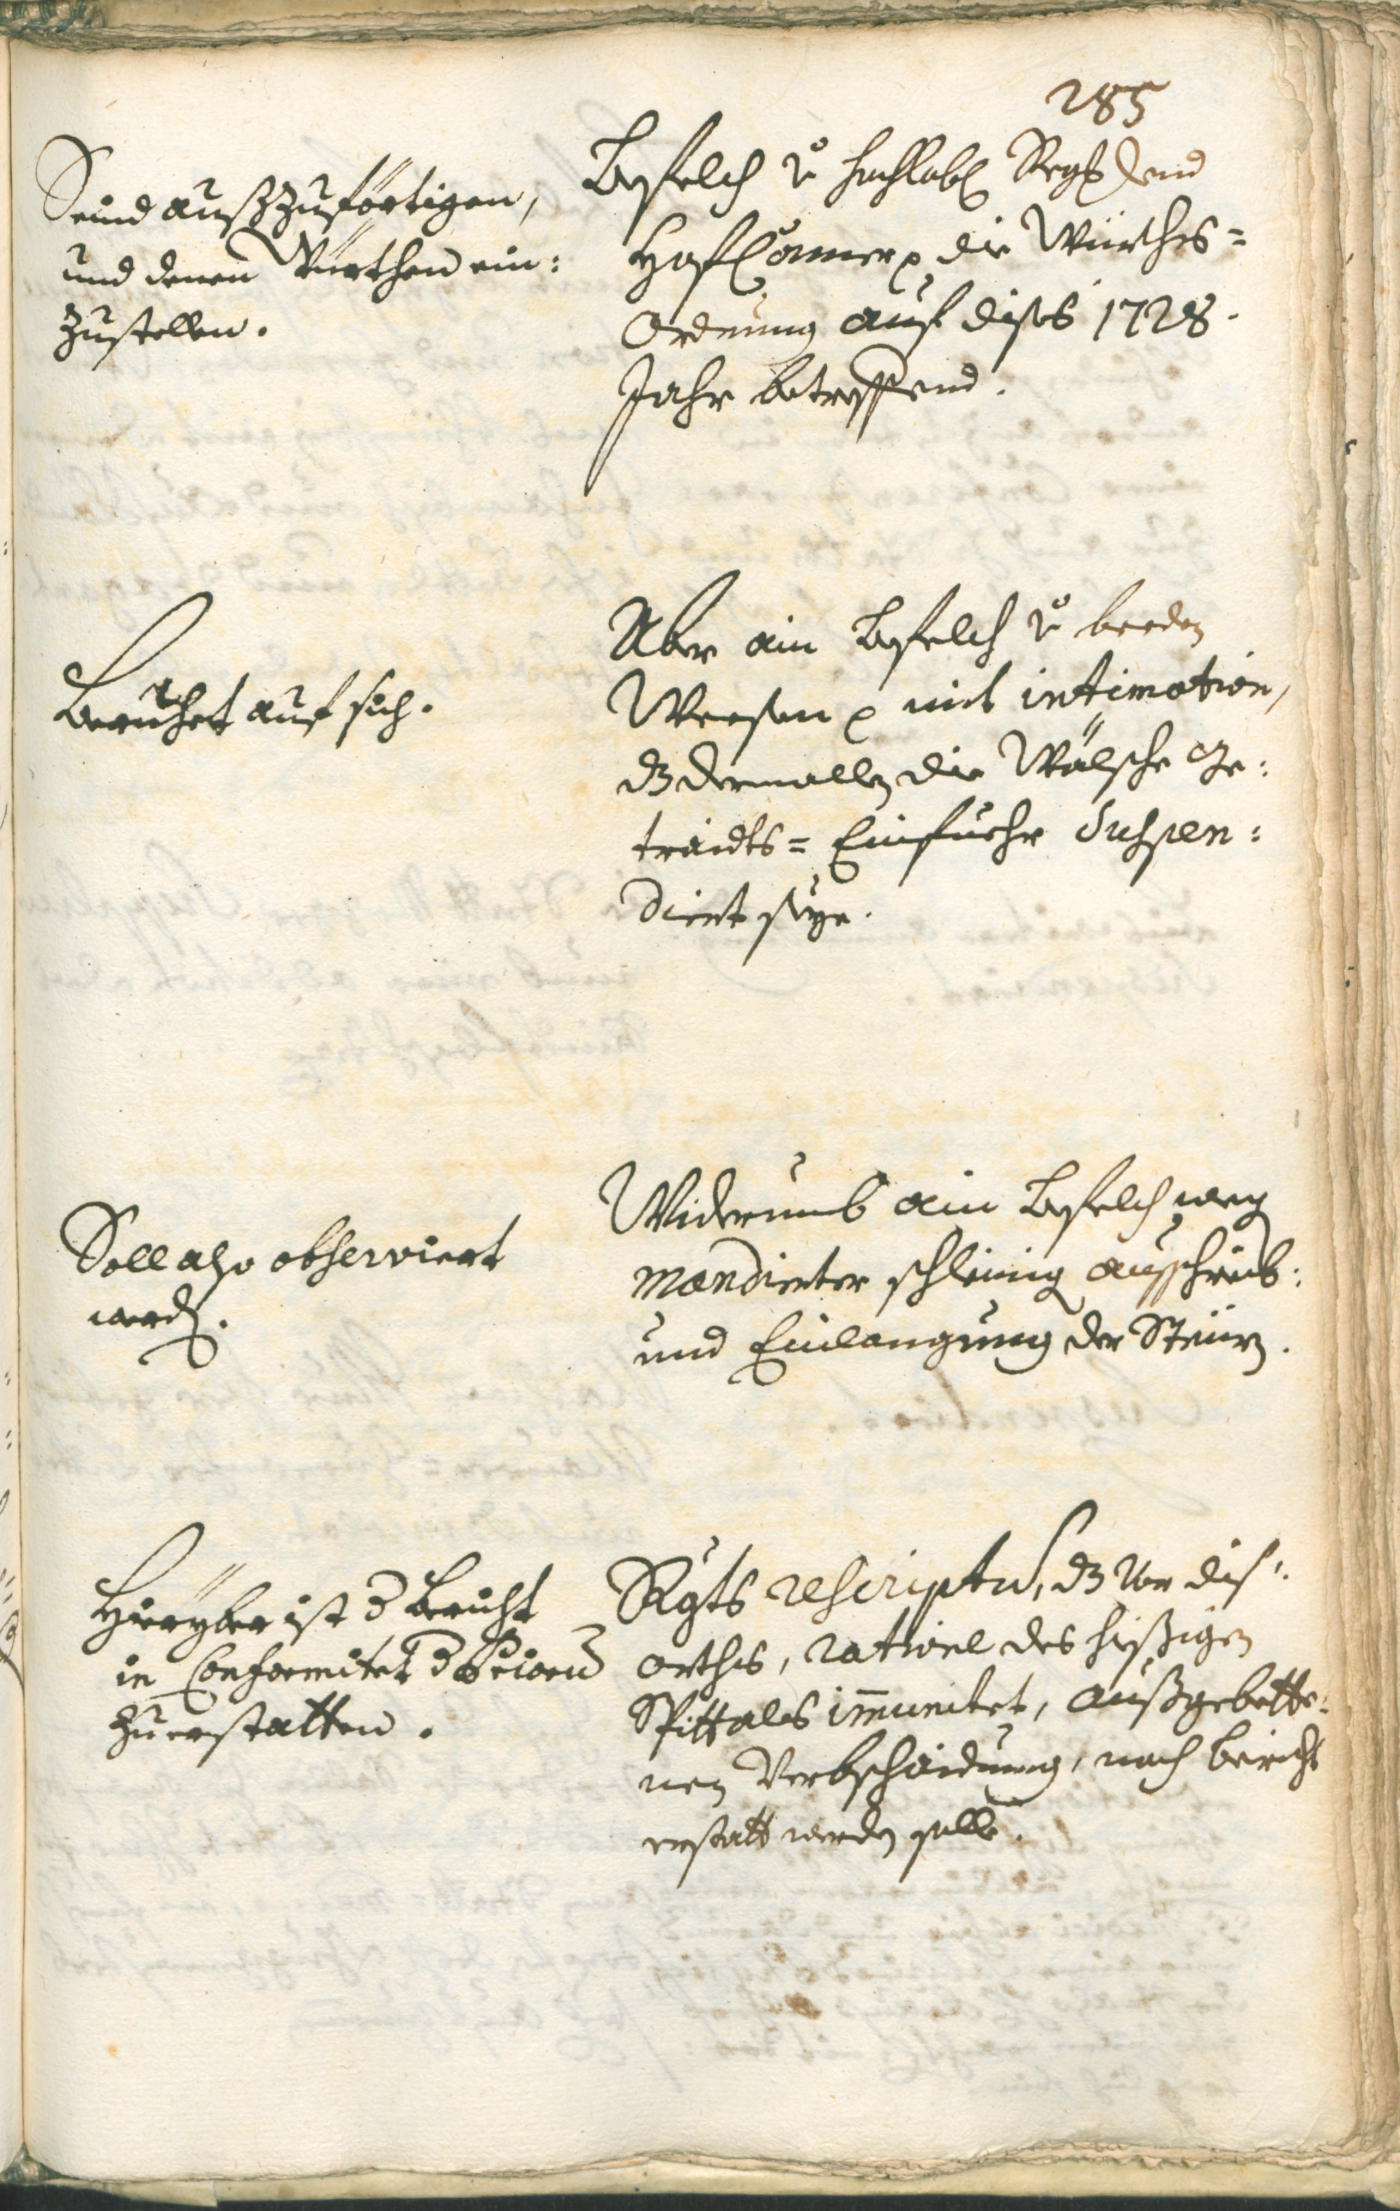 285
Seind außzuförtigen,
und denen Würthen ein:
zustellen.
Befelch v̊ hochlobl Regs und
HofCamer die Würths=
Ordnung auf dises 1728.
Jahr betreffend.
Beruhet auf sich.
Aber ain Befelch v̊ beeden
Weesen mit intimation,
dz dermallen die Wälsche Ge:
traidts= Einfuehr Suspen:
dirt seye.
Soll also observiert
werden.
Widerumb ain Befelch weg
mandierter schleinig ausschreib:
und Einlangung der Steürn.
Hieryber ist d Bericht
in Conformitet d Priorn
zuerstatten.
Rgts rescriptum, dz Von dis:
orths, ratione des hießigen
Spittals imunitet, außgebette:
nen Verbschaidung, noch bericht
erstatt werden solle.